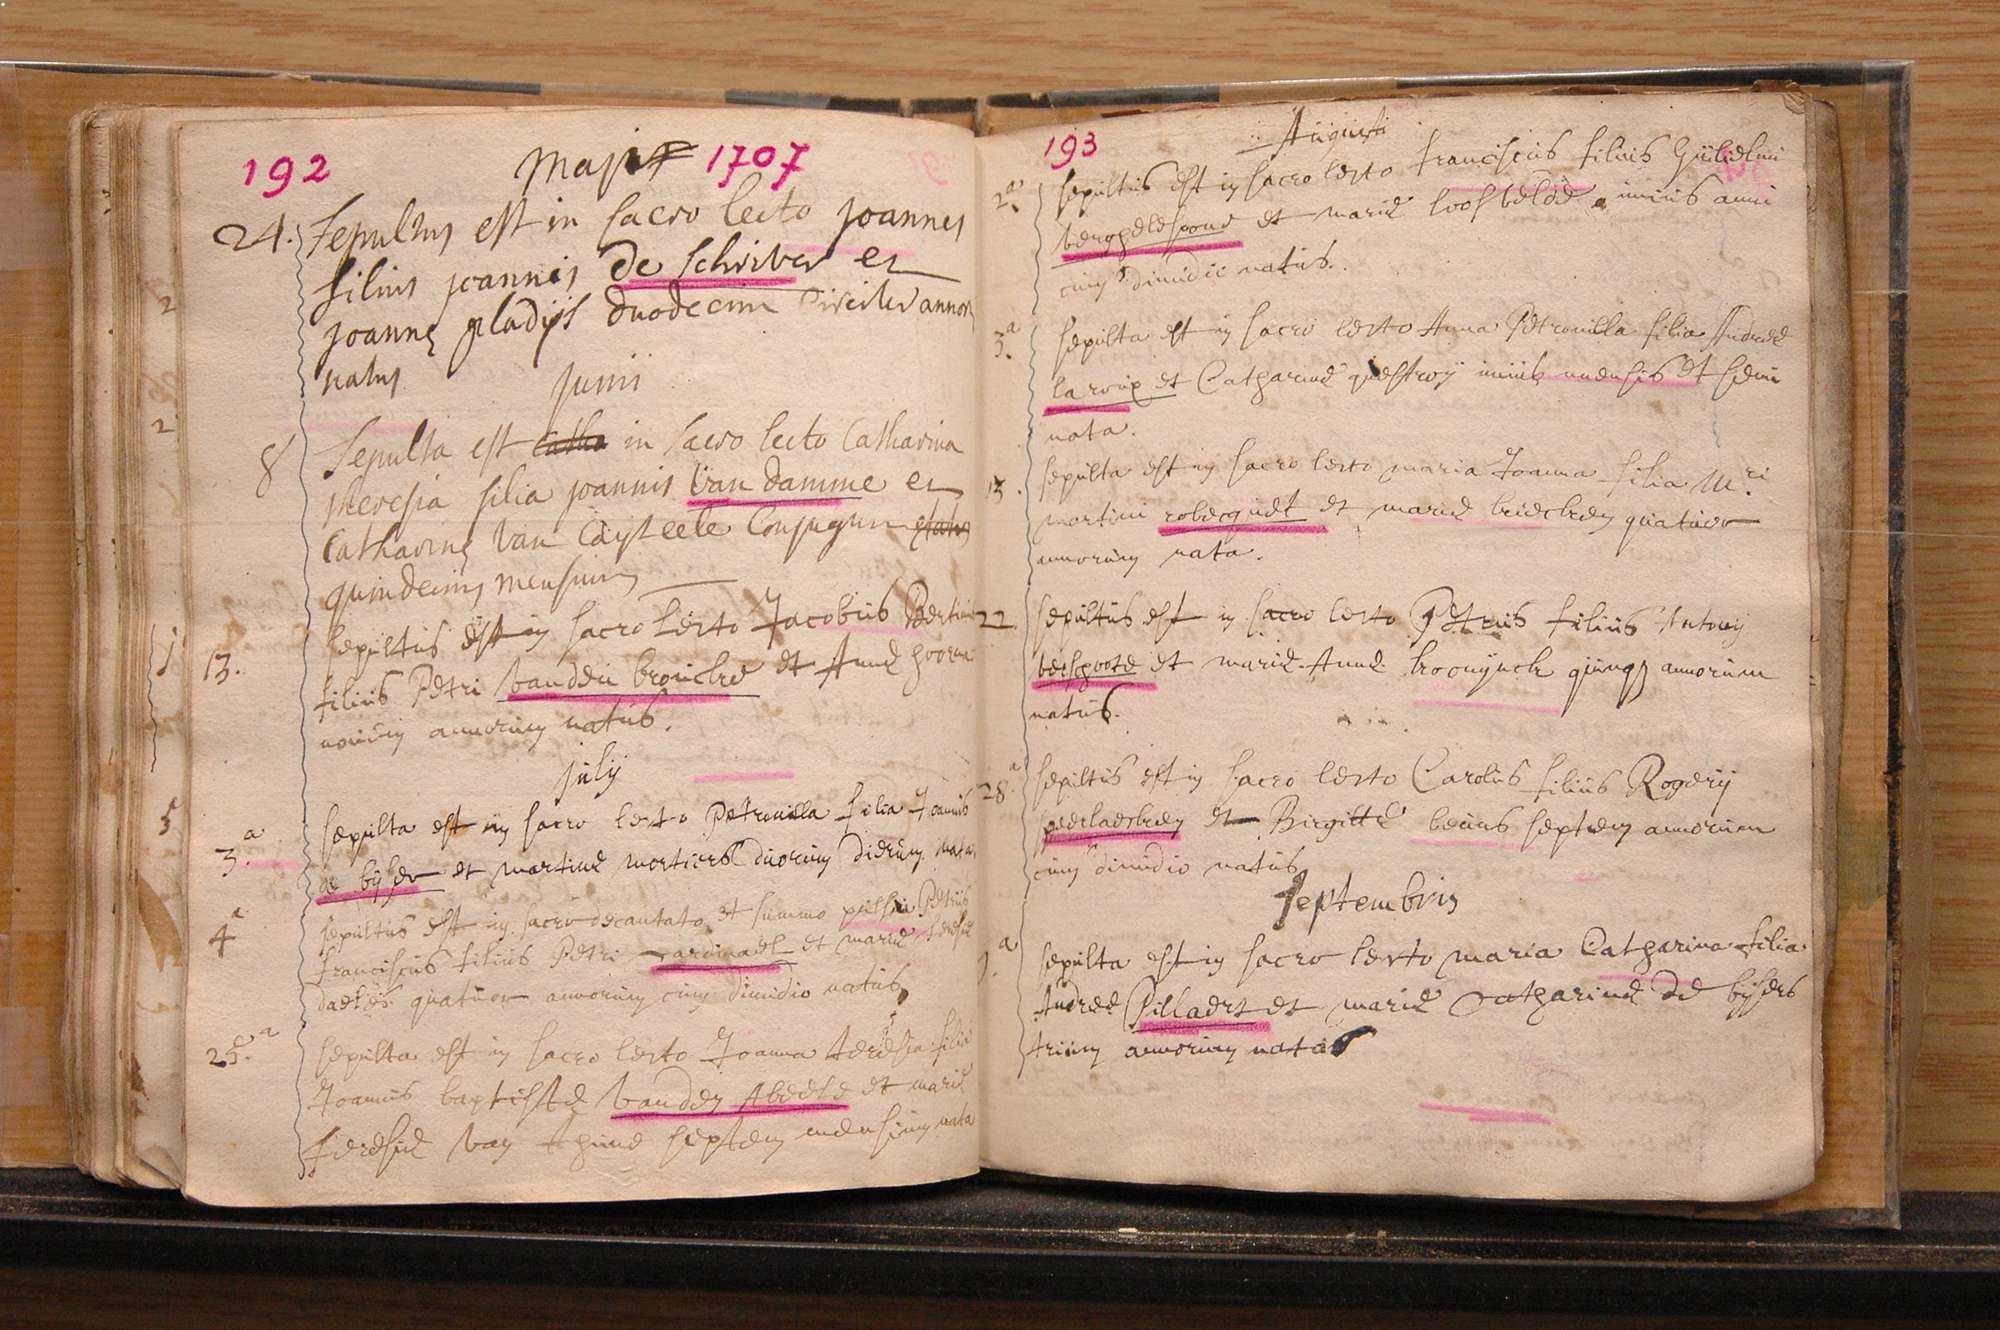 192
Maji 1707
24. Sepultus est in sacro lecto joannes
filius joannis de schriver et
joannę gladijs duodecim circiter annos
natus
Junii
8 Sepulta est in sacro lecto Catharina
theresia filia joannis Van damme et
Catharinę Van Cayseele Conjugum
quindecim mensium
13. sepultus est in sacro lecto Jacobus
filius Petri vanden broucke et Annæ hoorna
novem annorum natus.
julij
3.a sepulta est in sacro lecto Petronilla filia Joannis
de bijser et martinæ mortiers duorum dierum nata
4a sepultus est in sacro decantato et summo pulsu Petrus
franciscus filius Petri cardinael et mariæ
daels quatuor annorum cum dimidio natus
25.a sepulta est in sacro lecto Joanna teresia filia
Joannis baptistæ vanden Abeele et mariæ
teresiæ van thune septem mensium nata
193
Augusti
2.a sepultus est in sacro lecto franciscus filius Guilielmi
et mariæ loosvelde unius anni
cum dimidio natus.
3.a sepulta est in sacro lecto Anna Petronilla filia Andreæ
laroux et Catharinæ questroy unius mensis et
nata.
13. sepulta est in sacro lecto maria Joanna filia M.ri
martini robecquet et mariæ quatuor
annorum nata.
22. sepultus est in sacro lecto Petrus filius Antonij
verhoote et mariæ Annæ quinq annorum
natus.
28.a sepultus est in sacro lecto Carolus filius Rogerij
et Birgittæ septem annorum
cum dimidio natus
Septembris
a sepulta est in sacro lecto maria Catharina filia
Andreæ Pillaert et mariæ catharinæ de bijsers
trium annorum nata